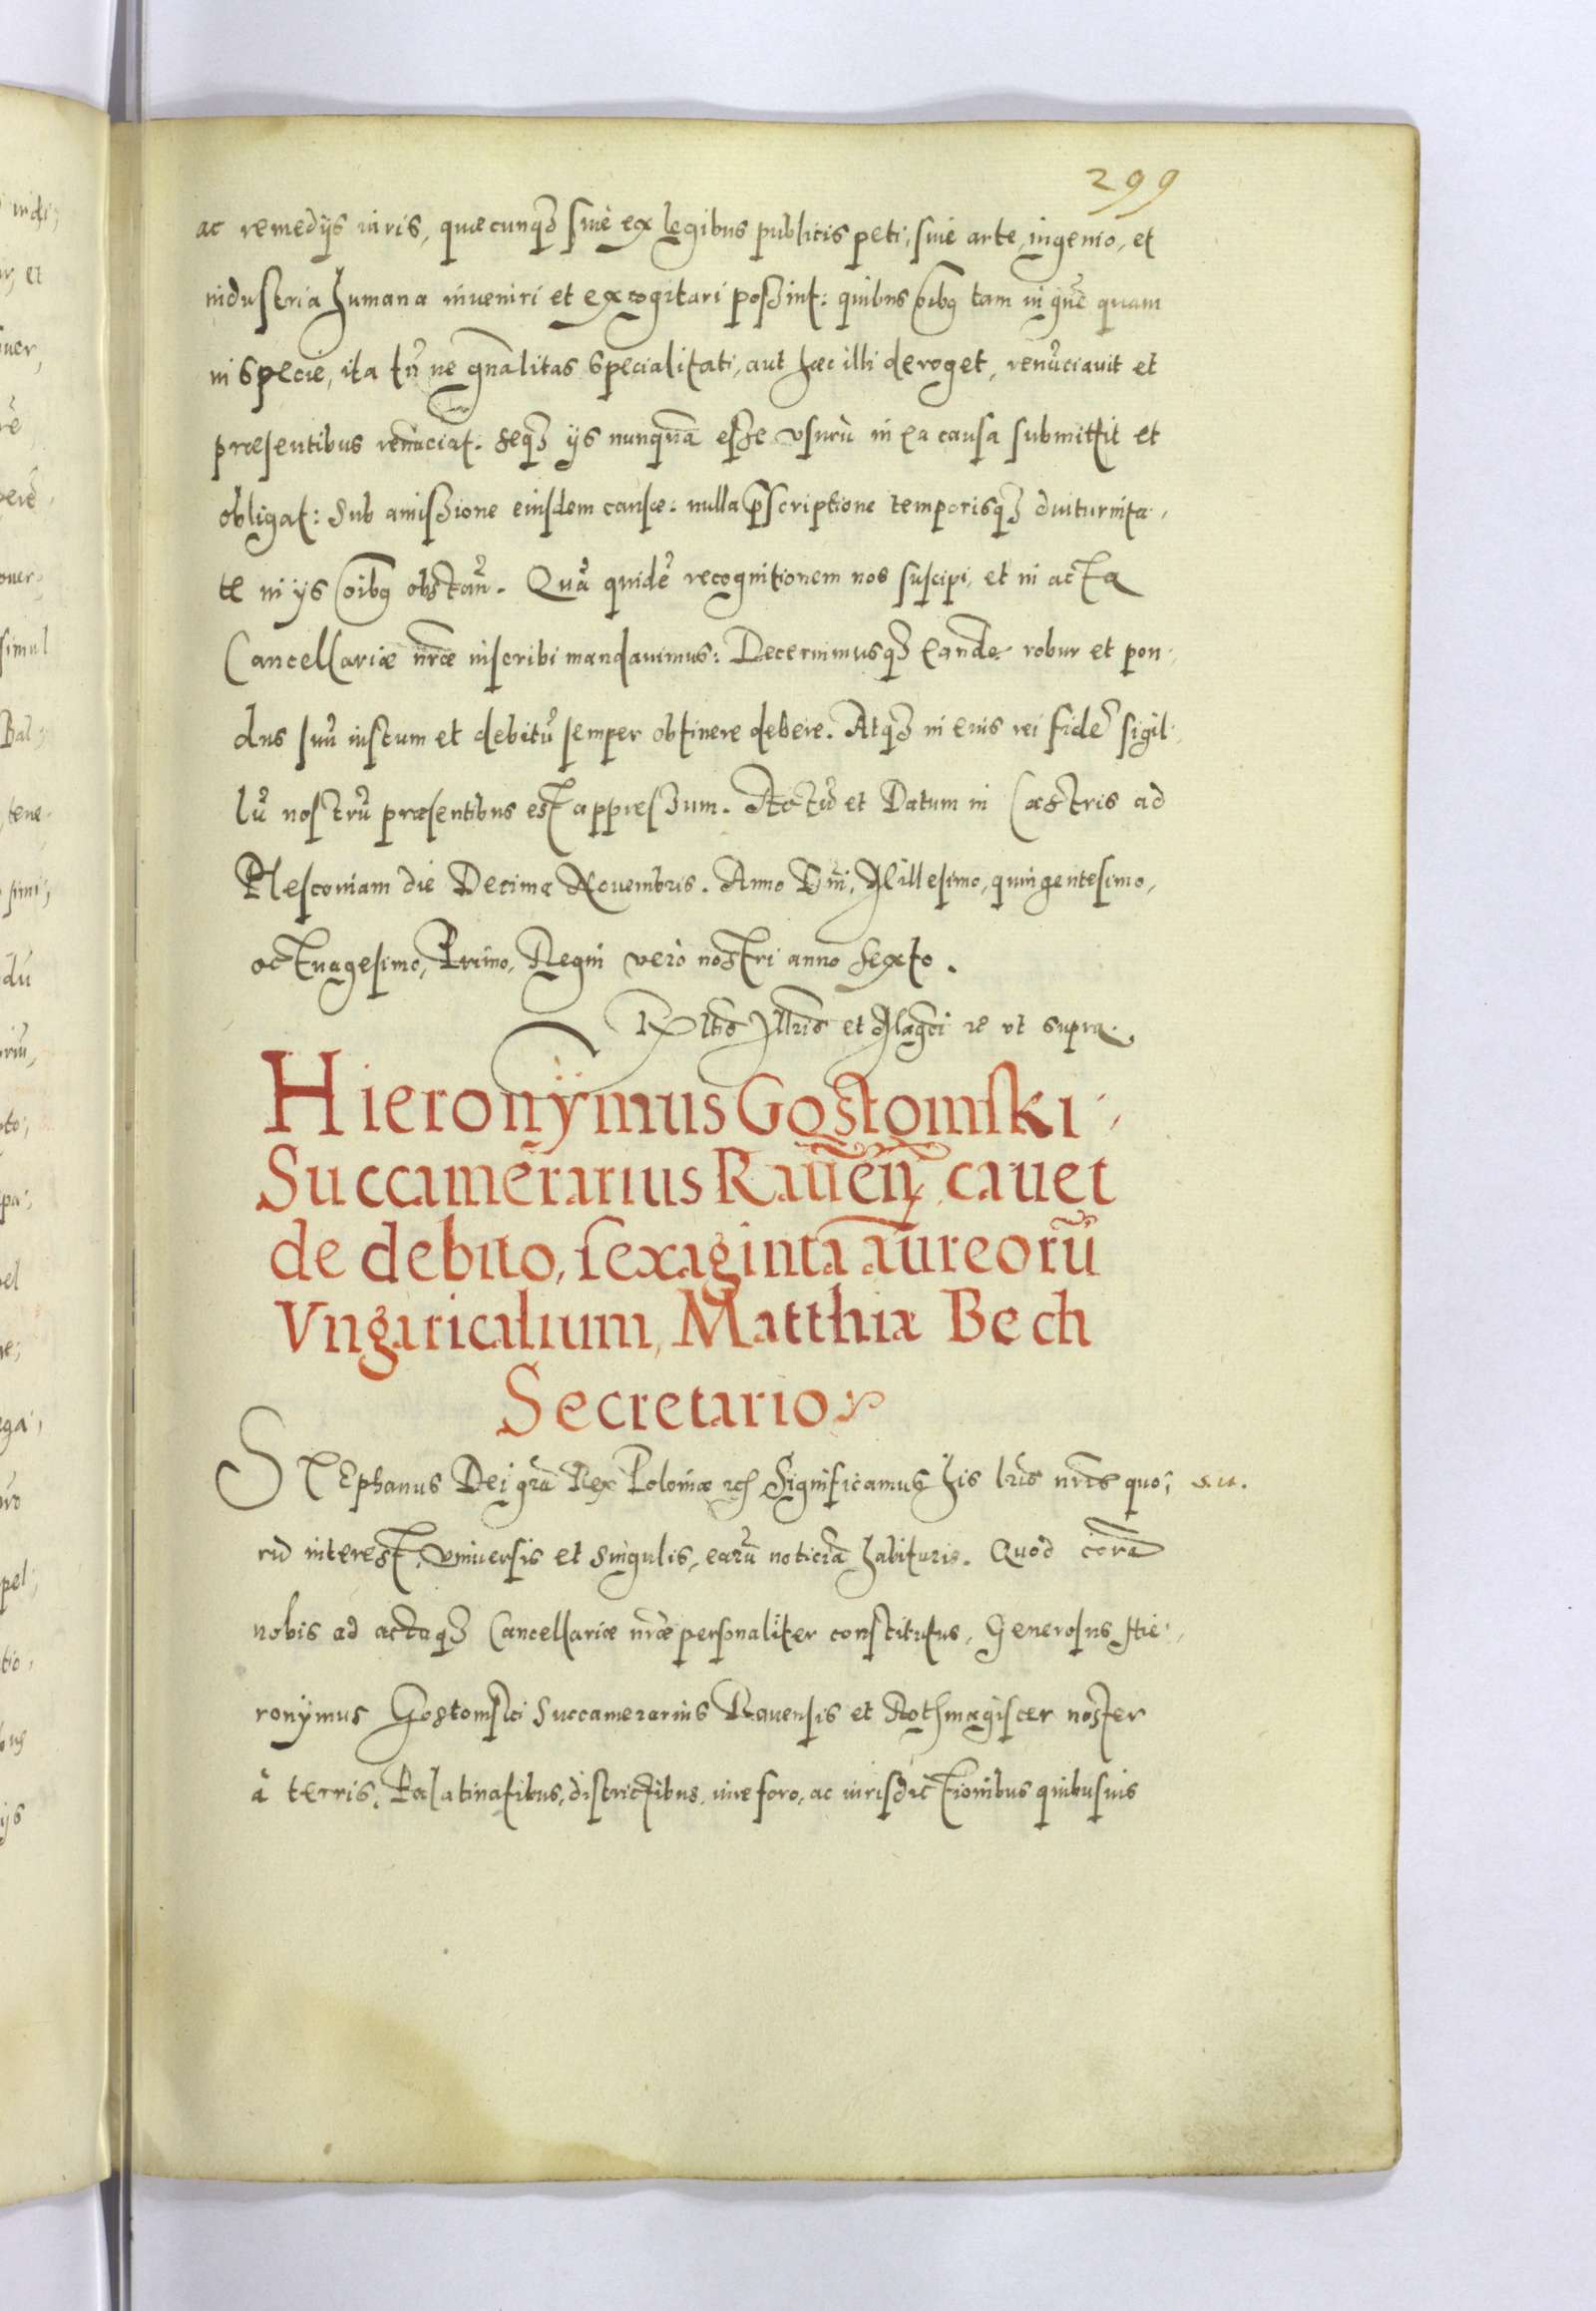 299
ac remedijs iuris, quæcunq₃ siue ex legibus publicis peti, siue arte, ingenio, et
industria humana inueniri et excogitari possint: quibus oībꝰ tam in gñe quam
in specie, ita tñ ne gñalitas specialitati, aut hæc illi deroget, renũciauit et
præsentibus renũciat. seq₃ ijs nunquã esse vsurũ in ea causa submittit et
obligat: Sub amissione eiusdem causæ: nulla p̃scriptione temporisq₃ diuturnita-
te in ijs oībꝰ obstañ. Quã quidẽ recognitionem nos suscipi, et in acta
Cancellariæ nr̃æ inscribi mandauimus: Decernimusq₃ eandẽ robur et pon-
dus suũ iustum et debitũ semper obtinere debere. Atq₃ in eius rei fidẽ sigil-
lũ nostrũ præsentibus est appressum. Actũ et Datum in Castris ad
Plescouiam die Decima Nouembris. Anno Dñi, Millesimo, quingentesimo,
octuagesimo, Primo, Regni vero nostri anno sexto.
Rltio Illris et Magci ꝛc vt supra.
Hieronÿmus Gostomski
Succamerarius Raueñ, cauet
de debito, sexaginta aureorũ
Vngaricalium, Matthiæ Bech
Secretario
STEphanus Dei gr̃a Rex Poloniæ ꝛc̃ Significamus his lr̃is nr̃is quo- s.u.
rũ interest, vniuersis et singulis, earũ noticiã habituris. Quod corã
nobis ad actaq₃ Cancellariæ nr̃æ personaliter constitutus, Generosus Hie-
ronÿmus Gostomski Succamerarius Rauensis et Rothmagister noster
à terris, Palatinatibus, districtibus, iure foro, ac iurisdictionibus quibusuis